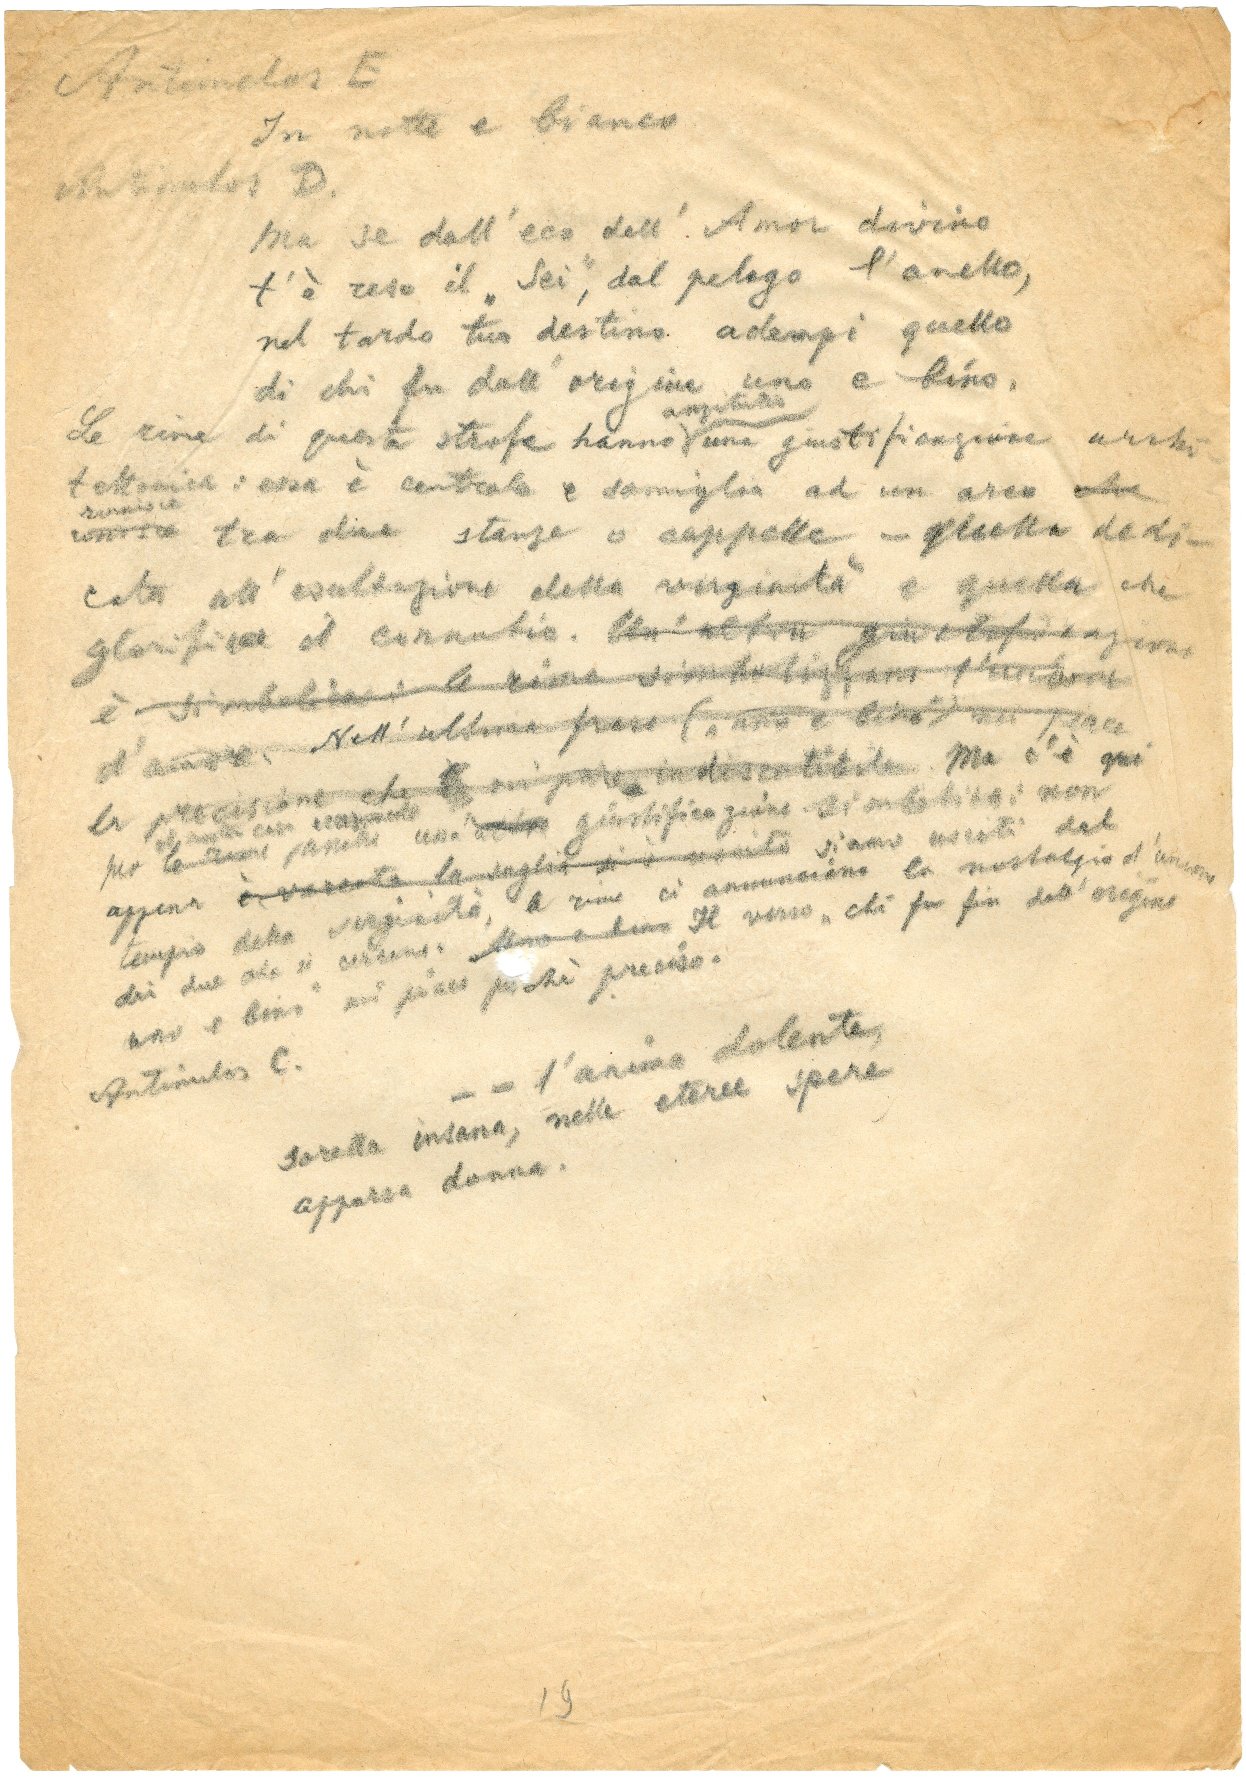 Antimelos E
In notte e bianco
Antimelos D.
Ma se dall'eco dell'. Amor divino
t'è reso il „Sei", dal pelago l'anello,
nel tardo tuo destino adempi quello
di chi fu dall'origine uno e bino.
anzitutto
Le rime di questa strofe hanno una giustificazione archi-
tettonica: essa è centrale e somiglia ad un arco che
riunisce
tra due stanze o cappelle - quella dedi-
cata all'esaltazione della verginità e quella che
glorifica il connubio. Un'altra giustificazione
è simbolica: le rime simboleggiano l'unione
d'amore. Nell'ultima frase („uno e bino") mi piace
la precisione che mi pare indiscutibile. Ma c'è qui
Ma le rime anche una giustificazione simbolica: non
appena è varcata la soglia si è usciti siamo usciti dal
tempio della verginità, le rime ci annunciano la nostalgia d'unione
dei due che si cercano. Uno e bino Il verso „chi fu fin dall'origine
uno e bino" mi piace perchè preciso.
Antimelos C.
-- l'anima dolente,
sorella insana, nelle eteree spere
apparsa donna.
19